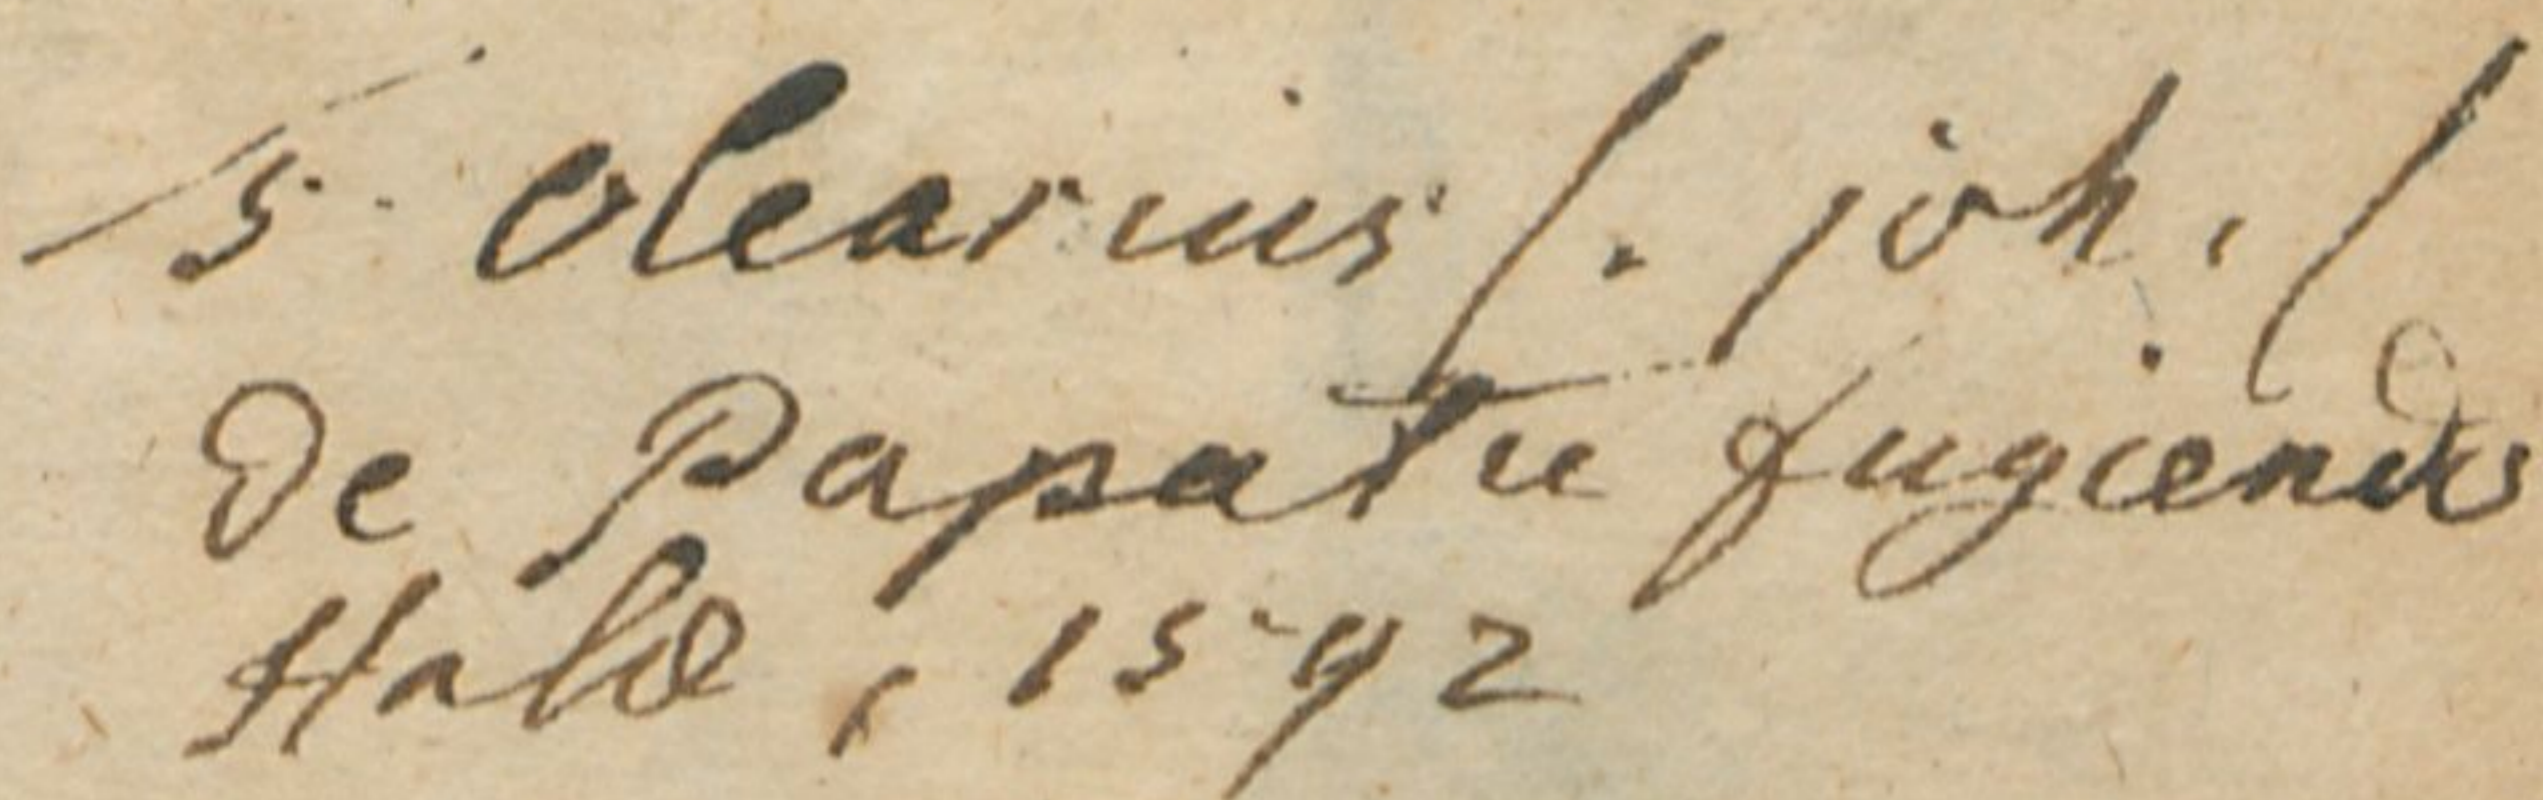 5. Olearius (. joh. (
De Papatu fugiendo
Halæ, 1592